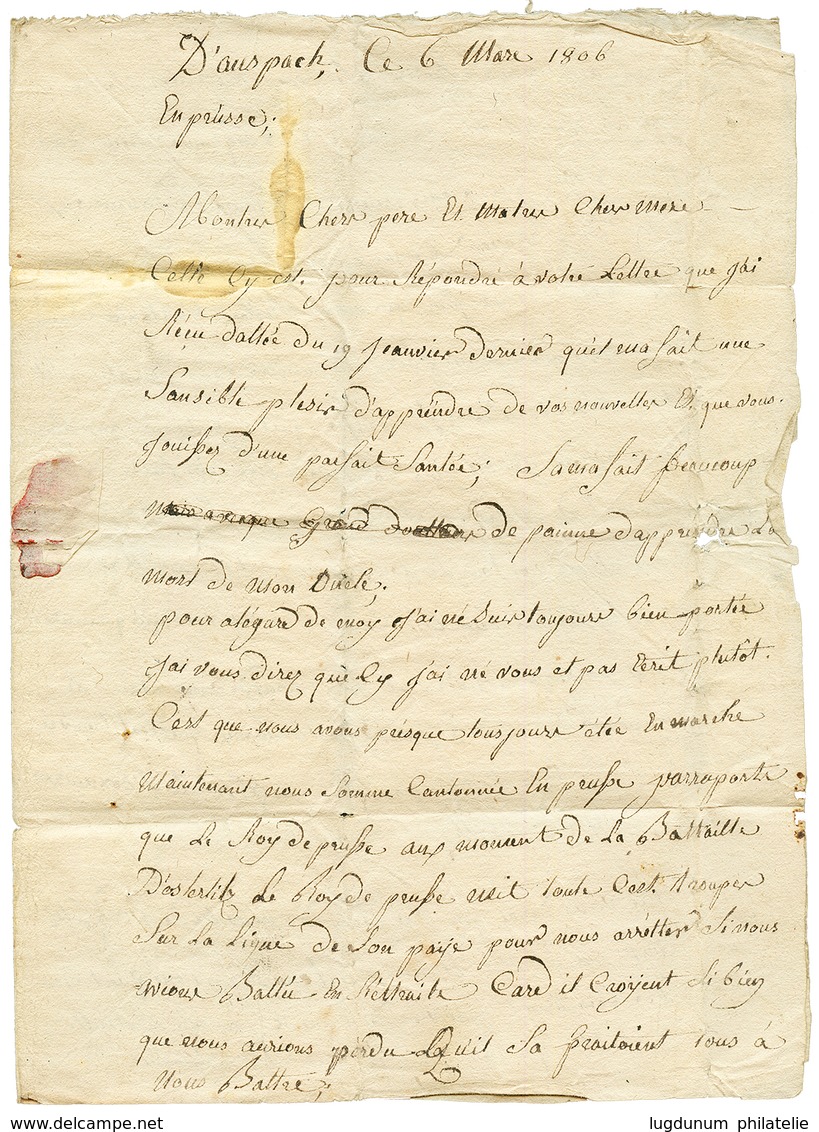 D'auspach, Ce 6 Mars 1806
En prusse;
Montres Chers pere Et Matres Cher mere
Cette Cy est. pour Répondre à votre Lettre que J'ai
Réçu dattée du 19 Jeanvier dernier qu'el ma fait une
Sansible plesir d'apprendre de vos nouvelles Et que vous
Jouissez d'une parfait Santée; Sa ma fait Beaucoup
de painne d'apprendre La
mort de Mon Oncle;
pour a légard de moy J'ai mé Suis toujours bien portée
J'ai vous direz que Cy J'ai né vous et pas Ecrit plutôt.
C'est que nous avons presque tousjours étée En marche
Maintenant nous Somme Cantonnée En prusse parraports
que Le Roy de prusse aux moment de La Battaille
D'osterlitz Le Roy de prusse mit toute C'est trouper
Sur La Ligne de Son paye pour nous arrétter Si nous
avions Battu En Rettraite Care il Croÿent Si bien
que nous aurions perdu Qu'il Sa fraitoient tous à
Nous Battre;
lugdunum philatelie